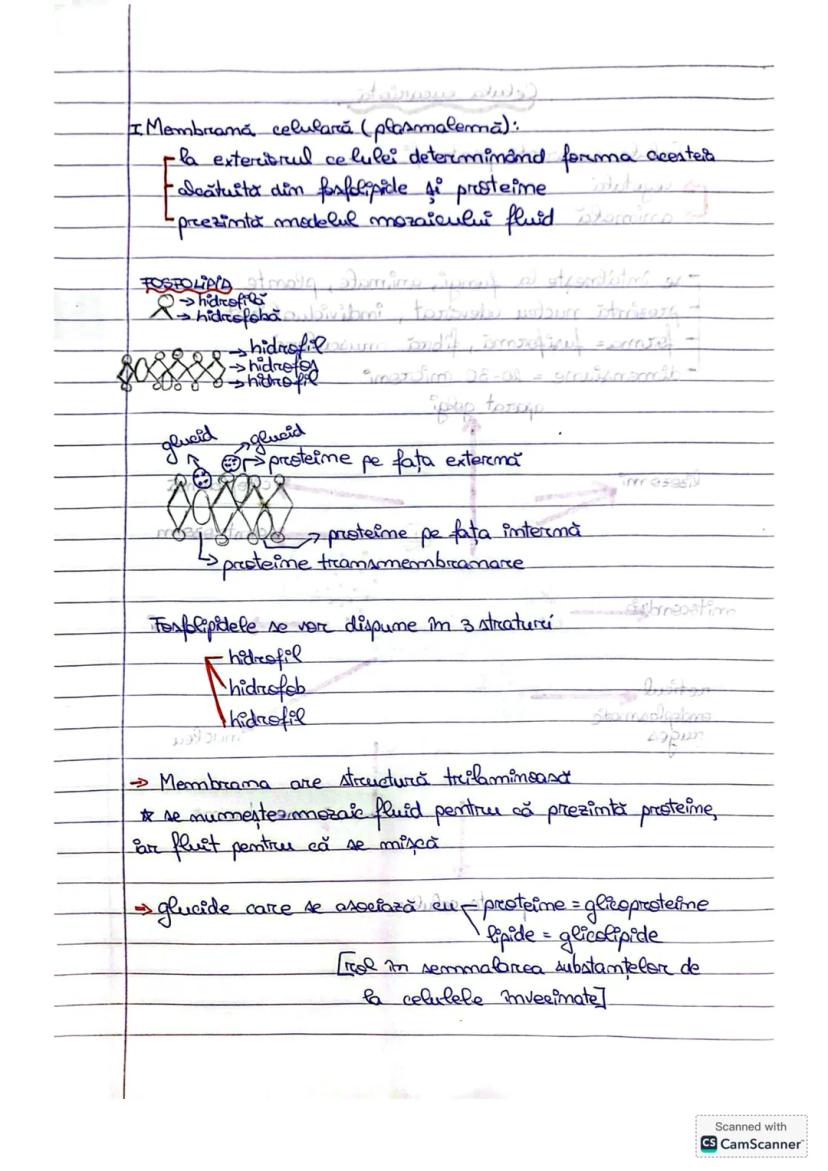 I Membrană celulară (plasmalemă):
la exteriorul celulei determinând forma acesteia
alcătuită din fosfolipide și proteine
prezintă modelul mozaicului fluid
FOSFOLIPID
→ hidrofilă
→ hidrofobă
→ hidrofil
→ hidrofob
→ hidrofil
glucid
glucid
→ proteine pe fața externă
→ proteine pe fața internă
→ proteine transmembranare
Fosfolipidele se vor dispune în 3 straturi
hidrofil
hidrofob
hidrofil
→ Membrana are structură trilaminoasă
* se numește mozaic fluid pentru că prezintă proteine,
iar fluit pentru că se mișcă
→ glucide care se asociază cu - proteine = glicoproteine
lipide = glicolipide
[rol în semnalarea substanțelor de
la celulele învecinate]
Scanned with
CS CamScanner